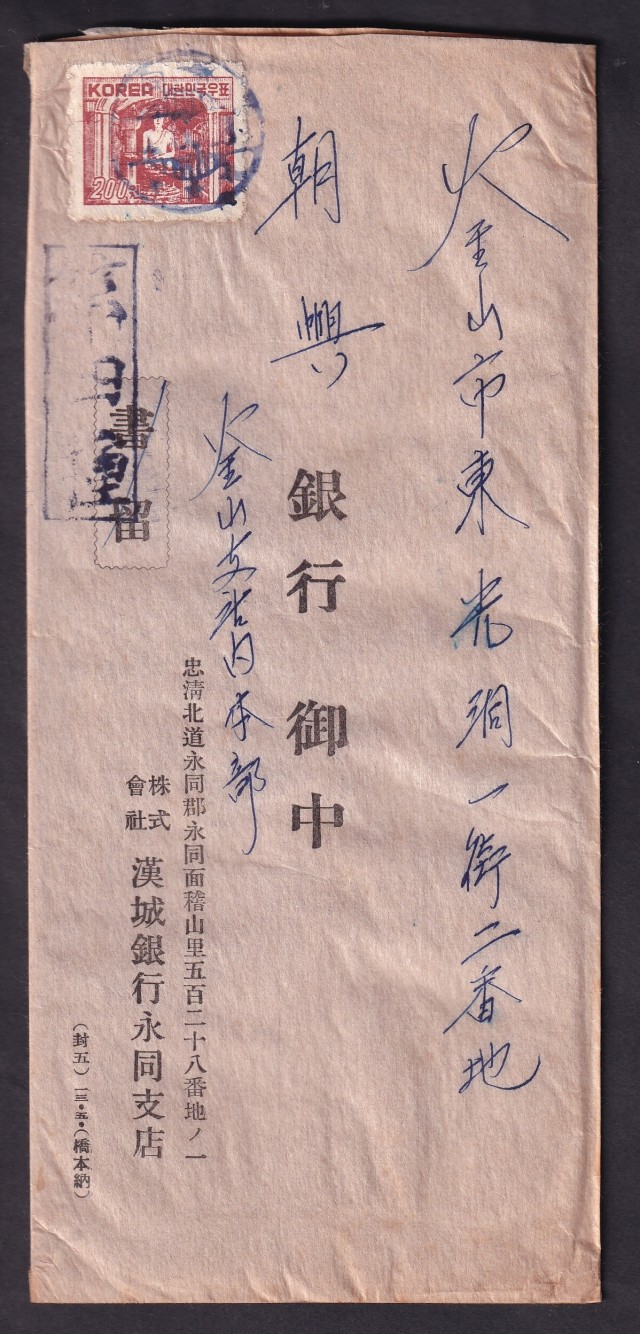 釜山市東光洞一街二番地
朝興銀行御中
釜山支店内本部
忠清北道永同郡永同面稽山里五百二十八番地ノ一
株式會社 漢城銀行永同支店
(封五) 一三・五・(橋本納)
書留
KOREA 대한민국우표
200